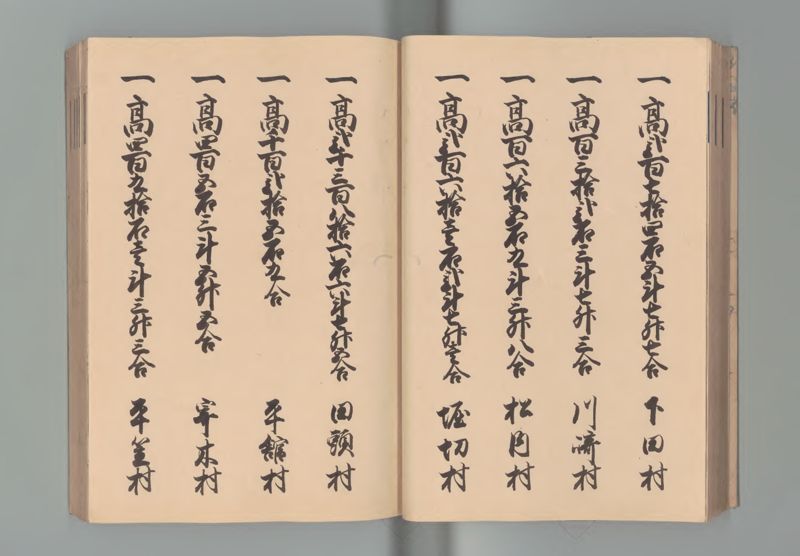 一 高弐百七拾四石五斗七升七合 下田村
一 高百三拾弐石三斗七升三合 川崎村
一 高百六拾五石九斗三升八合 松内村
一 高弐百六拾壱石弐斗七升壱合 堀切村
一 高弐千三百八拾六石六斗七升五合 田頭村
一 高千百弐拾五石九合 平舘村
一 高四百五石三斗五升五合 寄木村
一 高四百九拾石壱斗三升三合 平笠村